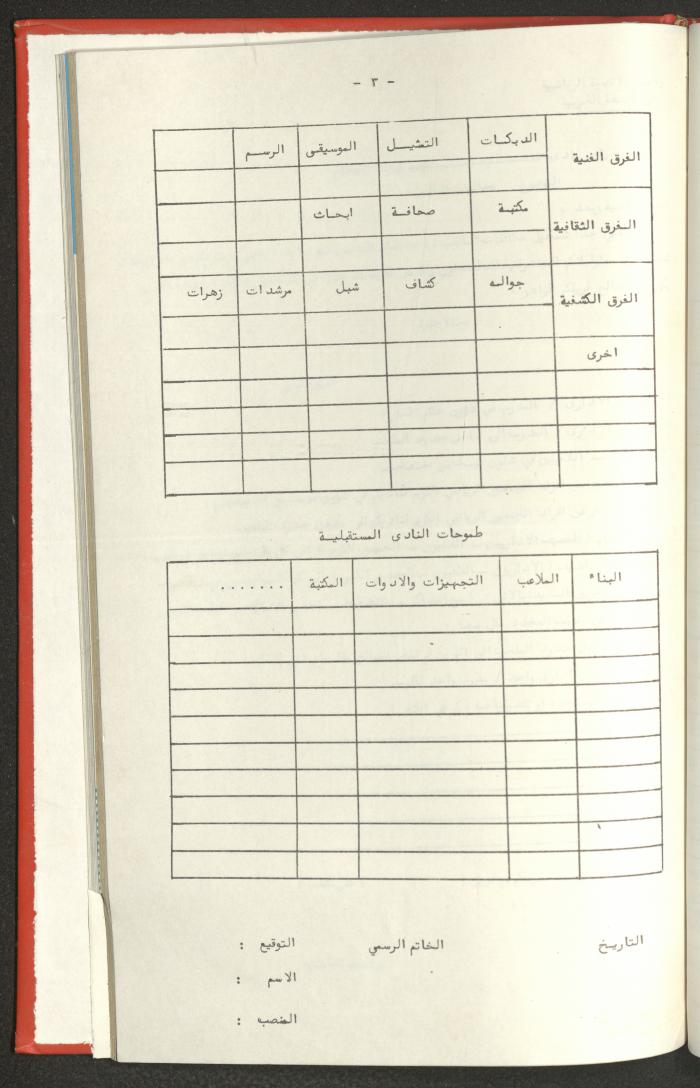 - ٣ -
الفرق الفنية الدبكات التمثيل الموسيقى الرسم
الفرق الثقافية مكتبة صحافة ابحاث
الفرق الكشفية جواله كشاف شبل مرشدات زهرات
اخرى
طموحات النادى المستقبلية
البناء الملاعب التجهيزات والادوات المكتبة .......
التاريخ الخاتم الرسمي التوقيع :
الاسم :
المنصب :